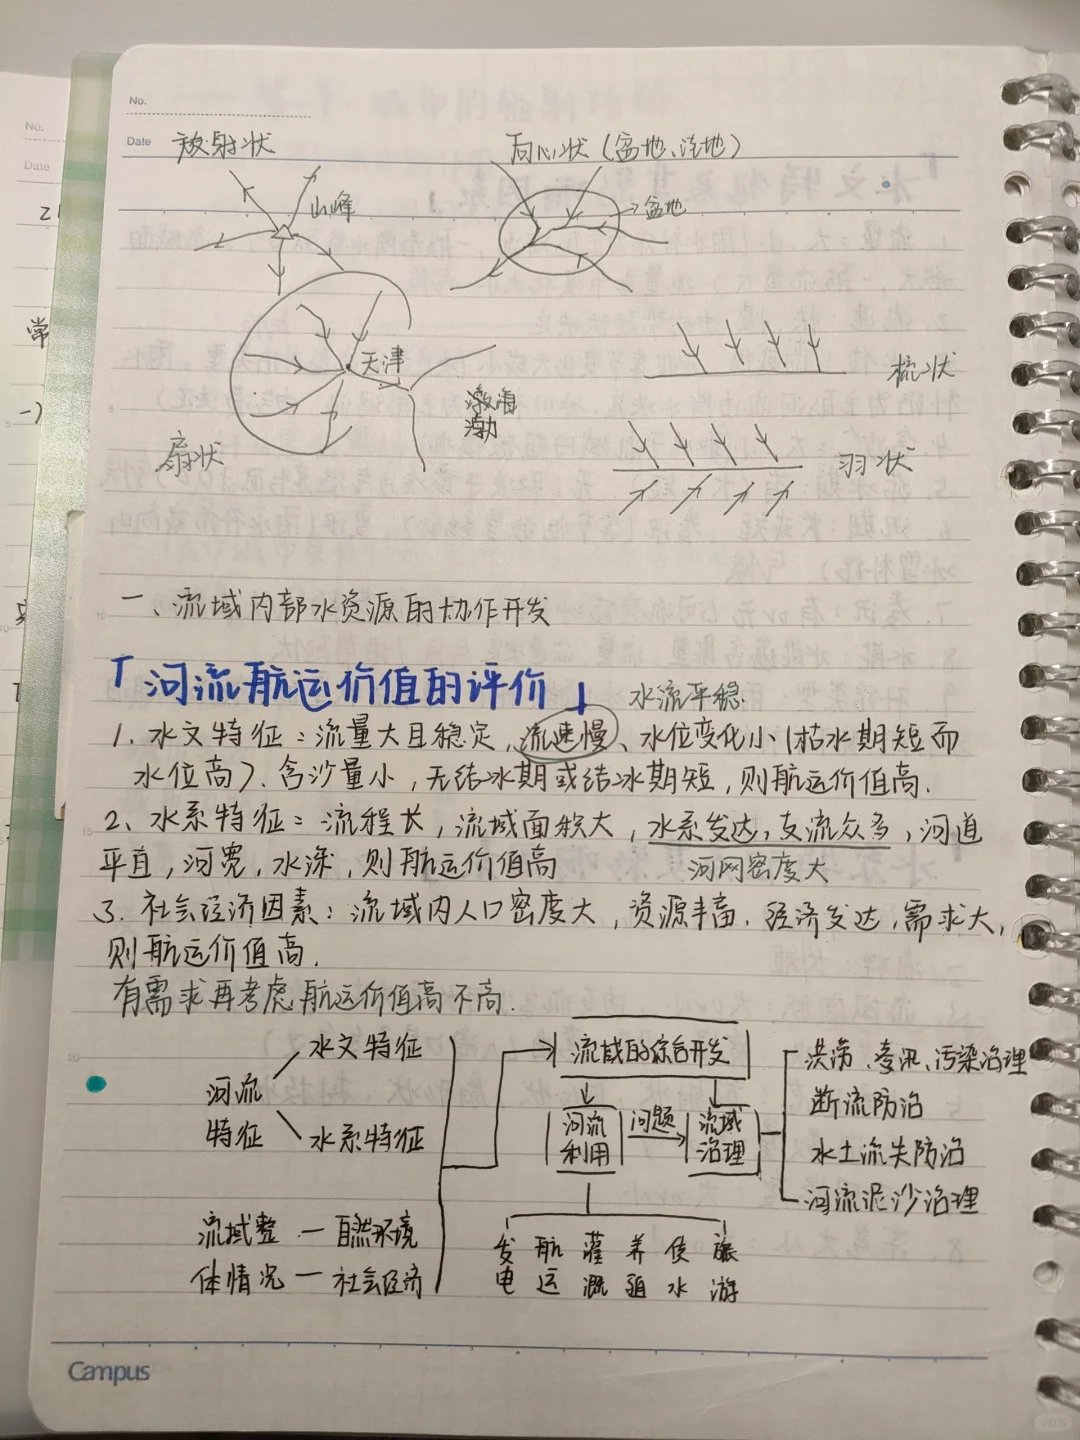 No.
Date
放射状
向心状(盆地、洼地)
山峰
盆地
天津
渤海
渤
扇状
梳状
羽状
一、流域内部水资源的协作开发
「河流航运价值的评价」
水流平稳.
1. 水文特征：流量大且稳定，流速慢、水位变化小(枯水期短而
水位高)、含沙量小，无结冰期或结冰期短，则航运价值高.
2、水系特征：流程长，流域面积大，水系发达，支流众多，河道
平直，河宽，水深，则航运价值高
河网密度大
3. 社会经济因素：流域内人口密度大，资源丰富、经济发达，需求大，
则航运价值高.
有需求再考虑航运价值高不高.
河流
特征
水文特征
水系特征
流域整
体情况
自然环境
社会经济
流域的综合开发
河流
利用
问题
流域
治理
洪涝、凌汛、污染治理
断流防治
水土流失防治
河流泥沙治理
发电
航运
灌溉
养殖
供水
旅游
Campus
No.
Date
常